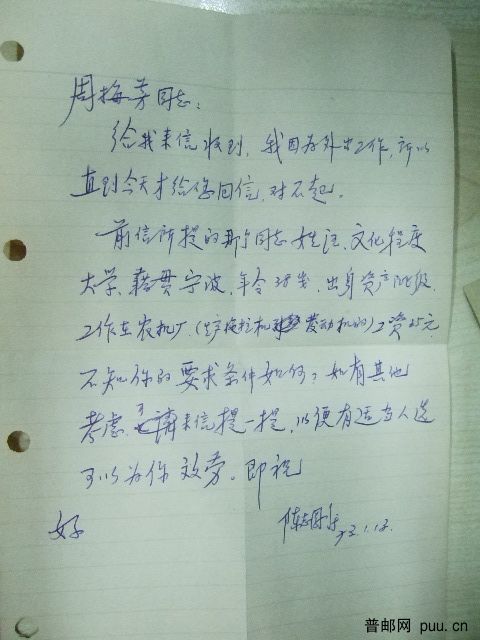 周梅芳同志:
给我来信收到,我因为外出工作,所以
直到今天才给您回信,对不起。
前信所提的那个同志姓汪、文化程度
大学、籍贯宁波、年令38岁、出身资产阶级、
工作在农机厂(生产拖拉机发动机的)工资65元
不知你的要求条件如何?如有其他
考虑,可请来信提一提,以便有适当人选
可以为你效劳。即祝
好
72.1.12.
普邮网 puu.cn